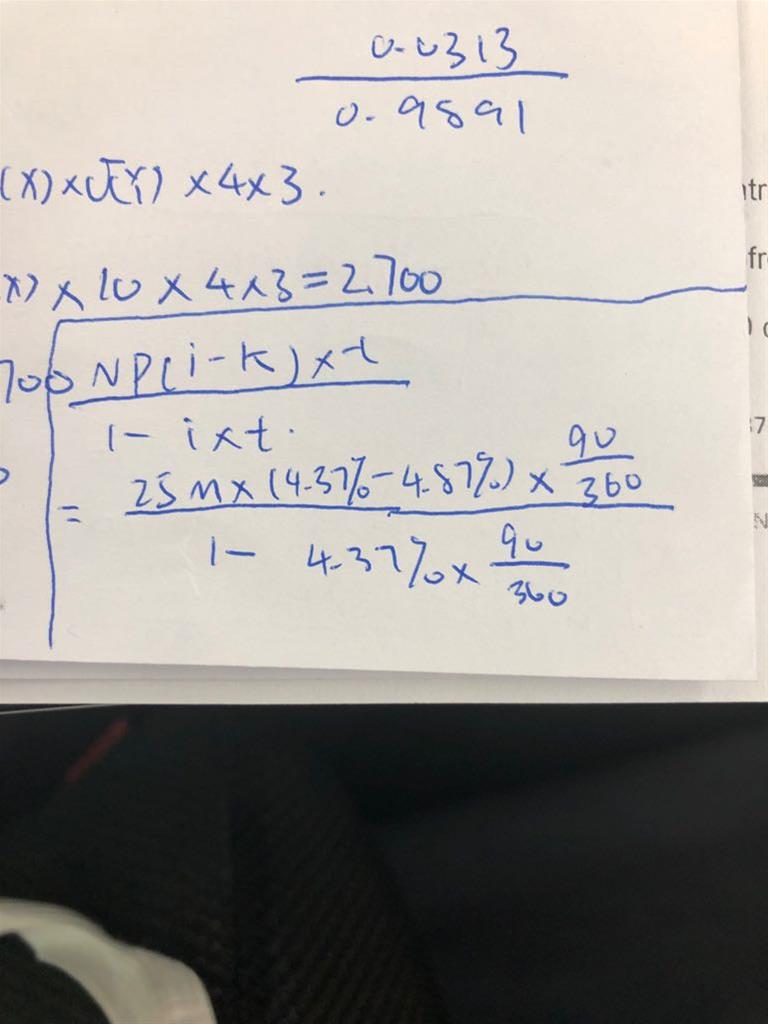 0.0313
0.9891
(X) × × 4 × 3.
X) × 10 × 4 × 3 = 2.700
700
NP(i - k) × t
1 - i × t.
= 25 M × (4.37% - 4.87%) × 90/360
1 - 4.37% × 90/360